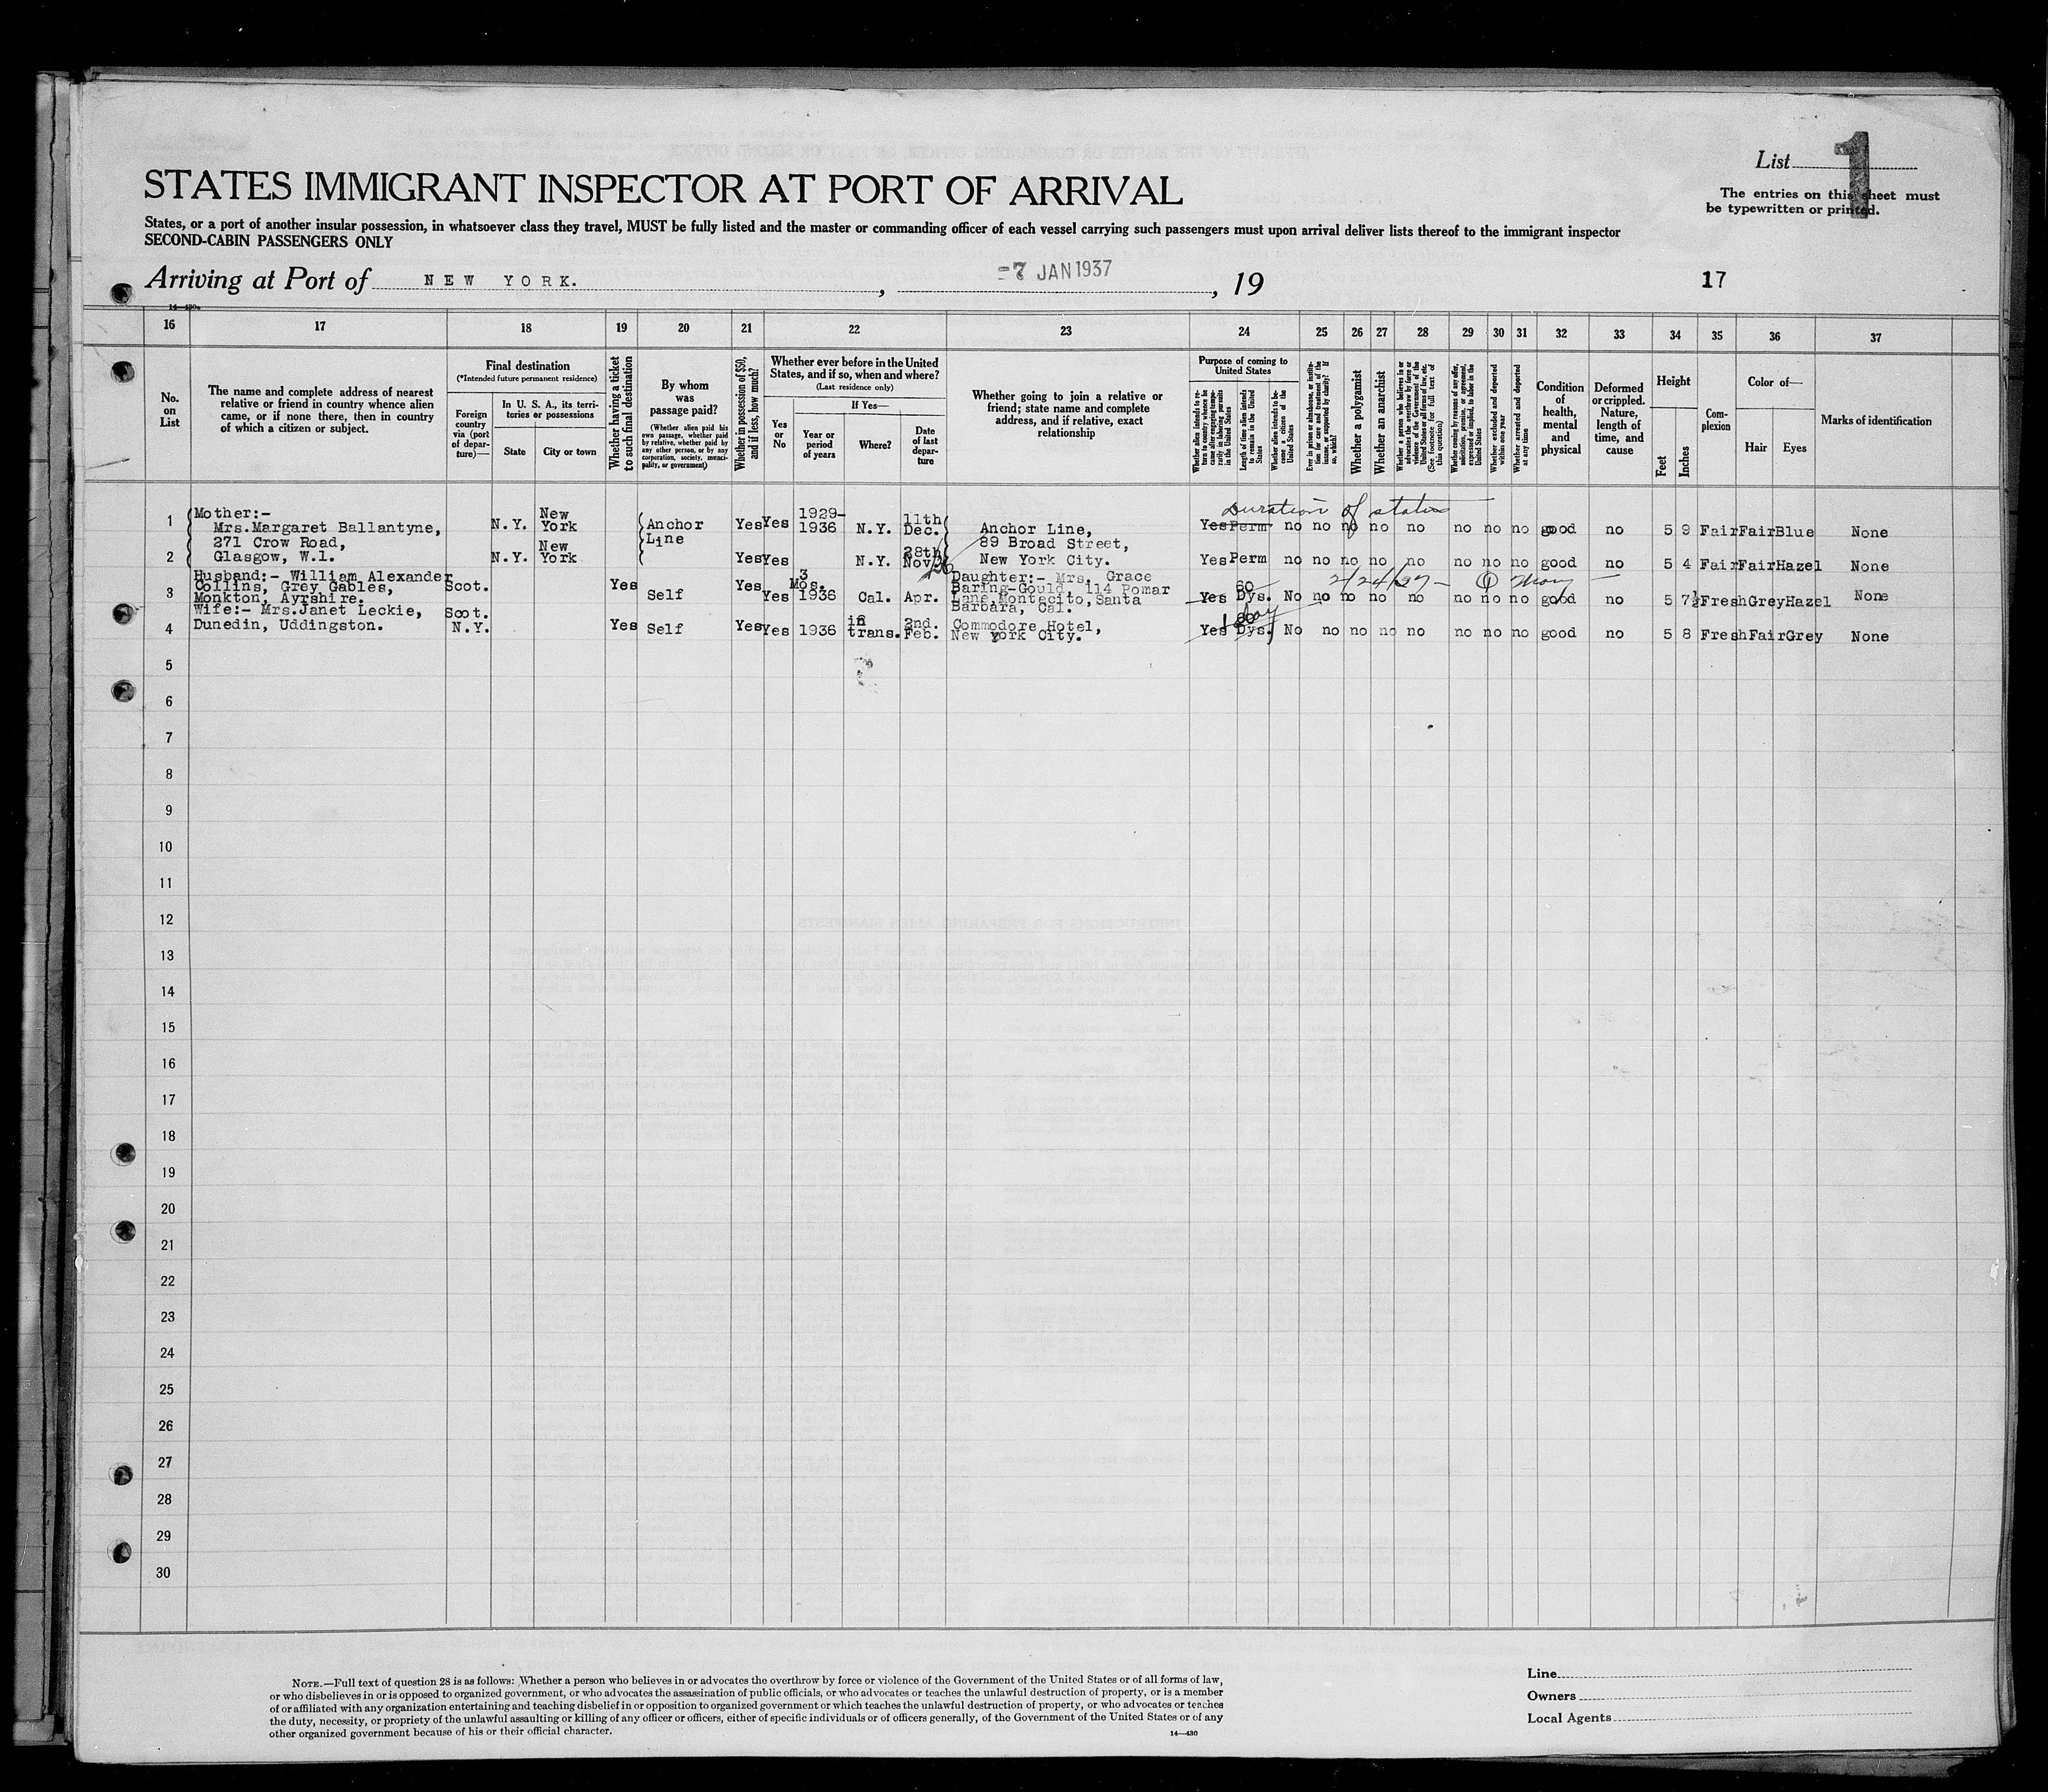 List 1
STATES IMMIGRANT INSPECTOR AT PORT OF ARRIVAL
The entries on this sheet must
be typewritten or printed.
States, or a port of another insular possession, in whatsoever class they travel, MUST be fully listed and the master or commanding officer of each vessel carrying such passengers must upon arrival deliver lists thereof to the immigrant inspector
SECOND-CABIN PASSENGERS ONLY
Arriving at Port of NEW YORK. , -7 JAN 1937 , 19 17
14-430a
16 17 18 19 20 21 22 23 24 25 26 27 28 29 30 31 32 33 34 35 36 37
No. on List
The name and complete address of nearest
relative or friend in country whence alien
came, or if none there, then in country
of which a citizen or subject.
Final destination
(*Intended future permanent residence)
Foreign country via (port of departure)—
In U. S. A., its territories or possessions
State
City or town
Whether having a ticket to such final destination
By whom was passage paid?
(Whether alien paid his own passage, whether paid by any other person, or by any corporation, society, municipality, or government)
Whether in possession of $50, and if less, how much?
Whether ever before in the United
States, and if so, when and where?
(Last residence only)
Yes or No
If Yes—
Year or period of years
Where?
Date of last departure
Whether going to join a relative or
friend; state name and complete
address, and if relative, exact
relationship
Purpose of coming to
United States
Length of time alien intends to remain in the United States
Whether alien intends to become a citizen of the United States
Whether a polygamist
Whether an anarchist
Whether excluded and deported within one year
Whether arrested and deported at any time
Condition of health, mental and physical
Deformed or crippled. Nature, length of time, and cause
Height
Feet
Inches
Complexion
Color of—
Hair
Eyes
Marks of identification
Duration of status
1 Mother:- Mrs.Margaret Ballantyne, N.Y. New York Anchor Line Yes Yes 1929-1936 N.Y. 11th Dec. Anchor Line, Yes Perm no no no no no no no no good no 5 9 Fair Fair Blue None
271 Crow Road, 89 Broad Street,
2 Glasgow, W.1. N.Y. New York Yes Yes N.Y. 28th Nov 36 New York City. Yes Perm no no no no no no no no good no 5 4 Fair Fair Hazel None
Husband:- William Alexander Daughter:- Mrs. Grace 2/24/37-
Collins, Grey Gables, Scot. Yes Yes 3 Mos. Baring-Gould, 114 Pomar
3 Monkton, Ayrshire. Self Yes 1936 Cal. Apr. Lane, Montecito, Santa Barbara, Cal. Yes 60 Dys. No no no no no no no no good no 5 7½ Fresh Grey Hazel None
Wife:- Mrs.Janet Leckie, Scot. 1 day
4 Dunedin, Uddingston. N.Y. Yes Self Yes Yes 1936 in trans. 2nd. Feb. Commodore Hotel, New York City. Yes 60 Dys. No no no no no no no no good no 5 8 Fresh Fair Grey None
5
6
7
8
9
10
11
12
13
14
15
16
17
18
19
20
21
22
23
24
25
26
27
28
29
30
NOTE.—Full text of question 28 is as follows: Whether a person who believes in or advocates the overthrow by force or violence of the Government of the United States or of all forms of law,
or who disbelieves in or is opposed to organized government, or who advocates the assassination of public officials, or who advocates or teaches the unlawful destruction of property, or is a member
of or affiliated with any organization entertaining and teaching disbelief in or opposition to organized government or which teaches the unlawful destruction of property, or who advocates or teaches
the duty, necessity, or propriety of the unlawful assaulting or killing of any officer or officers, either of specific individuals or of officers generally, of the Government of the United States or of any
other organized government because of his or their official character.
14-430
Line
Owners
Local Agents